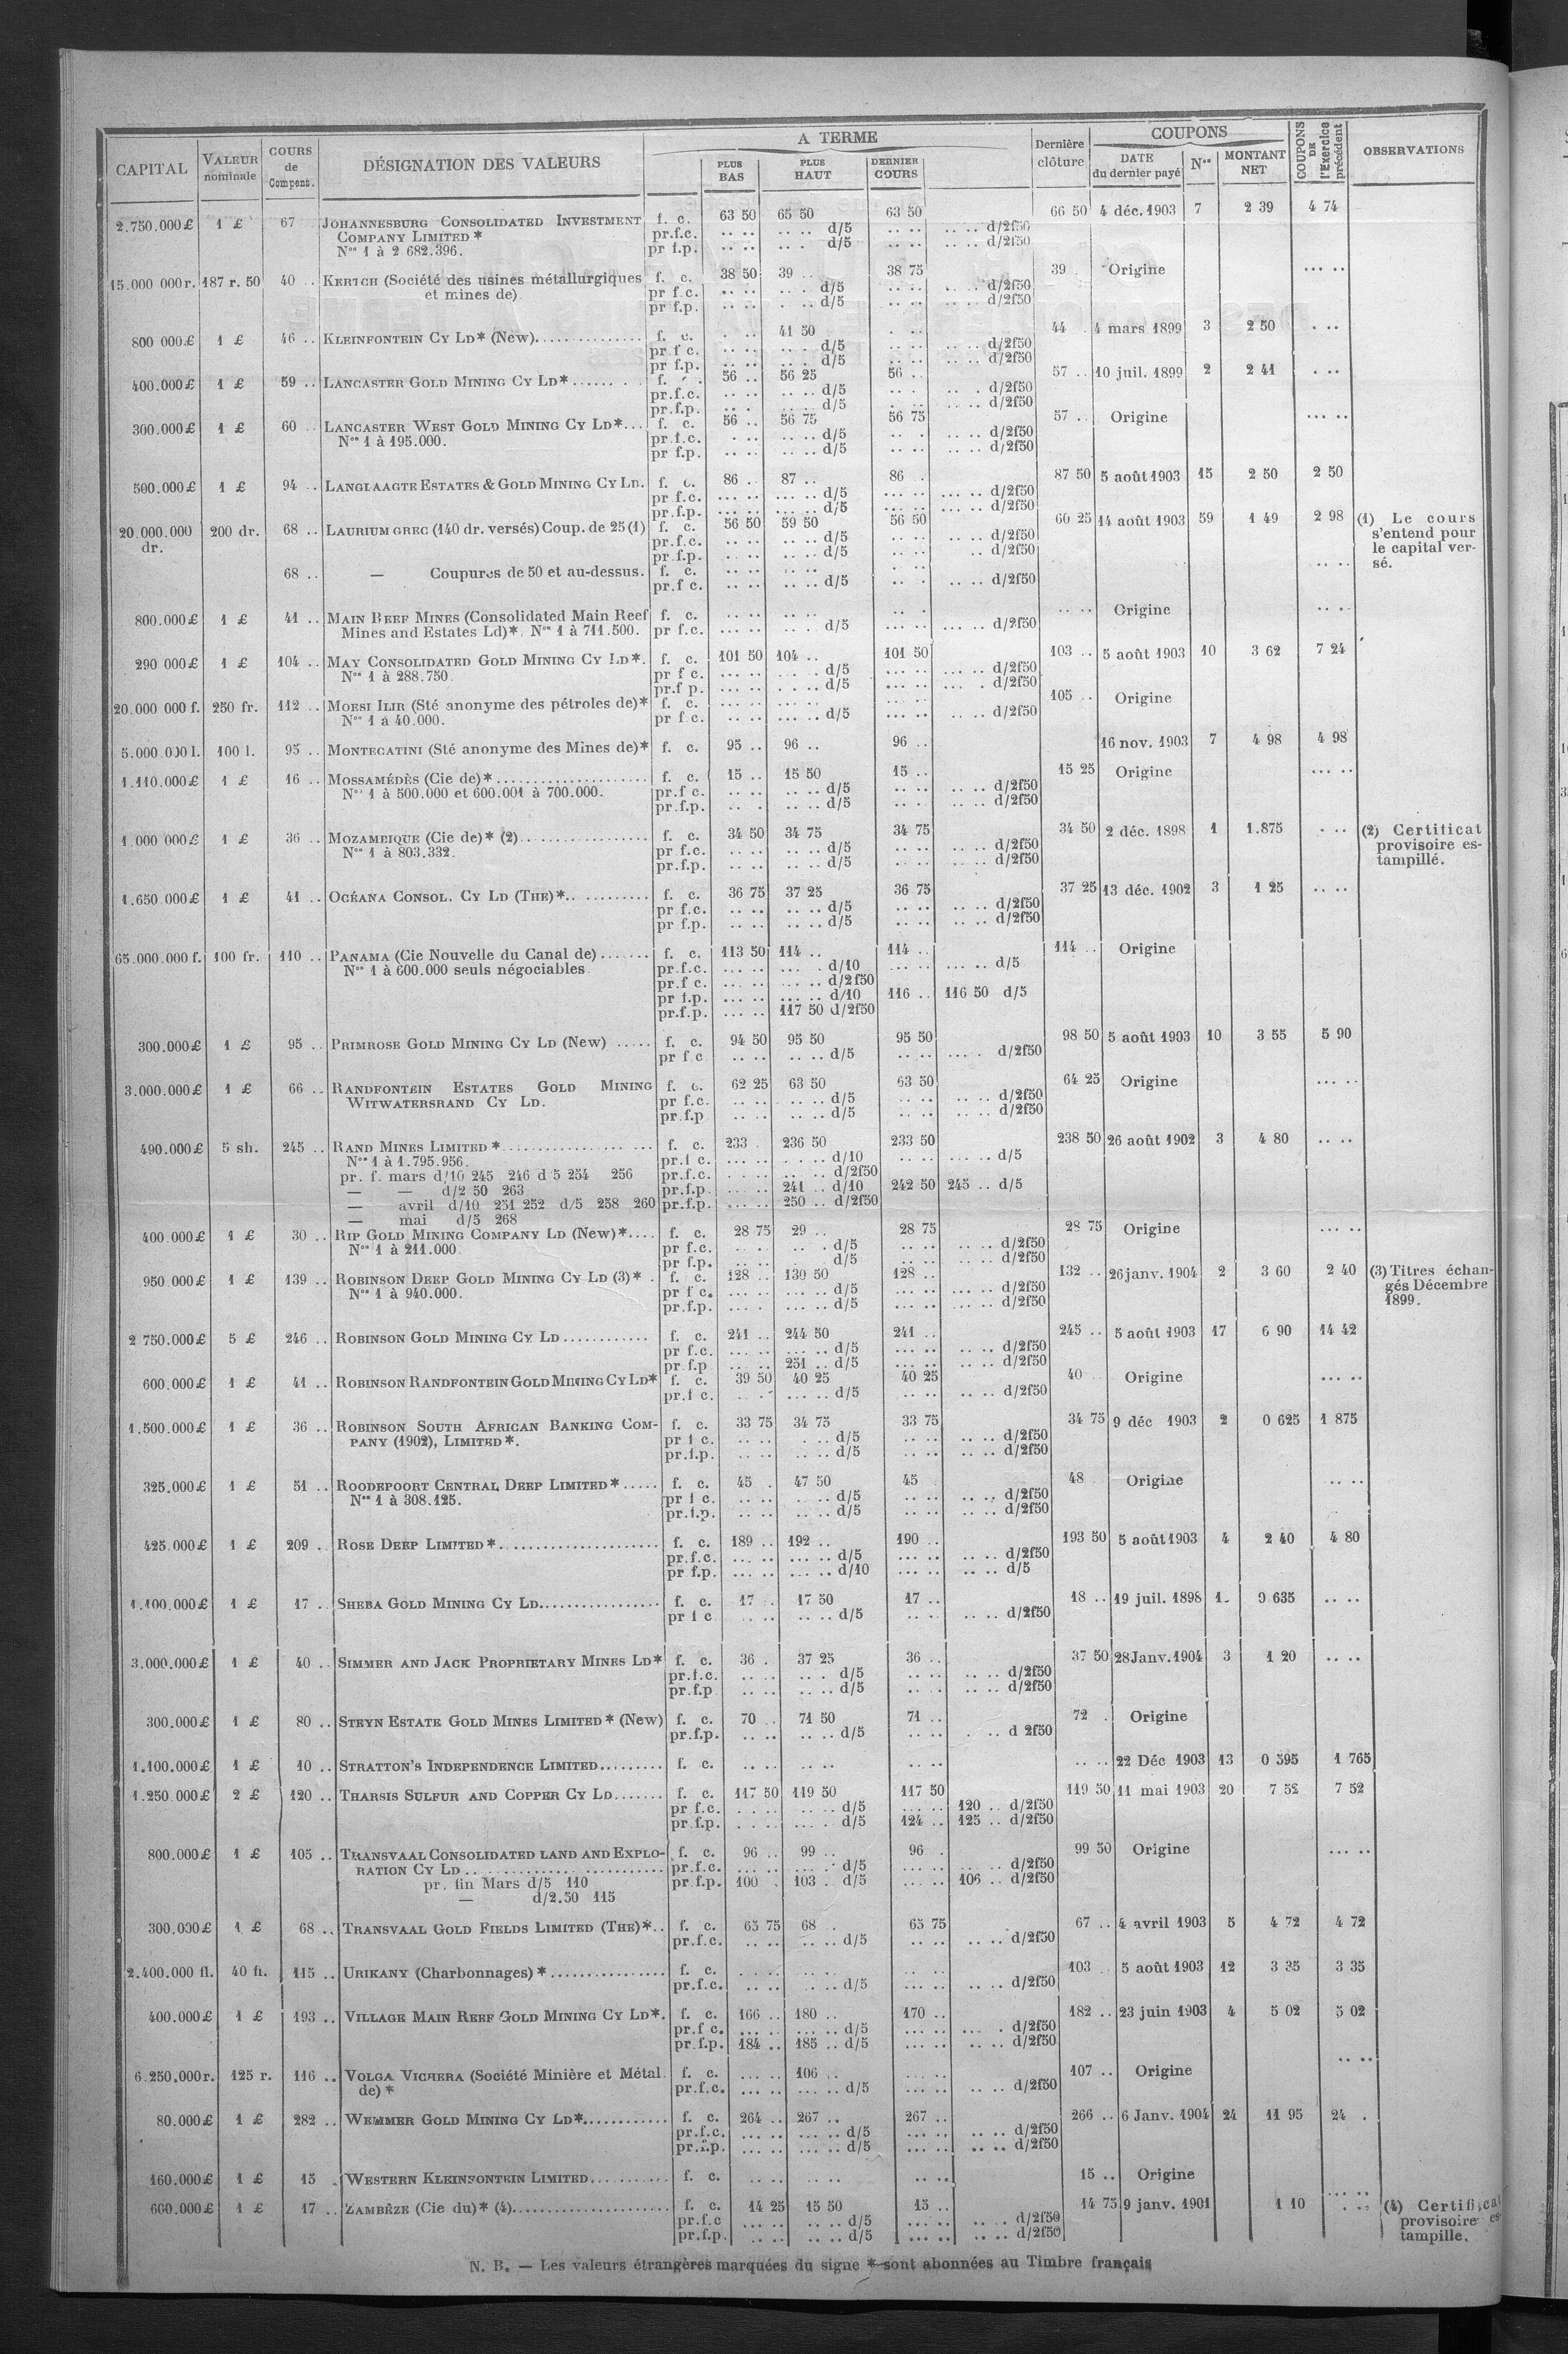 CAPITAL VALEUR nominale COURS de Compens. DÉSIGNATION DES VALEURS A TERME PLUS BAS PLUS HAUT DERNIER COURS Dernière clôture COUPONS DATE du dernier payé Nos MONTANT NET COUPONS DE l'Exercice précédent OBSERVATIONS
2.750.000£ 1 £ 67 JOHANNESBURG CONSOLIDATED INVESTMENT f. c. 63 50 65 50 63 50 66 50 4 déc. 1903 7 2 39 4 74
COMPANY LIMITED * pr.f.c. .. .. .. .. d/5 .. .. .. .. d/2f50
Nos 1 à 2 682.396. pr f.p. .. .. .. .. d/5 .. .. .. .. d/2f50
15.000 000r. 187 r. 50 40 .. KERTCH (Société des usines métallurgiques f. c. 38 50 39 .. 38 75 39 . Origine ... ..
et mines de) pr f.c. .. .. .. . d/5 .. .. .. .. d/2f50
pr f.p. .. .. . .. d/5 .. .. .. .. d/2f50
800 000£ 1 £ 46 .. KLEINFONTEIN CY LD* (New) f. c. . .. 41 50 . .. 44 . 4 mars 1899 3 2 50 . ..
pr f c. .. .. .. . d/5 .. .. .. .. d/2f50
pr f.p. .. .. .. . d/5 .. .. .. .. d/2f50
400.000£ 1 £ 59 .. LANCASTER GOLD MINING CY LD* f. 56 .. 56 25 56 .. 57 .. 10 juil. 1899 2 2 41 . ..
pr.f.c. .. .. .. .. d/5 .. . .. . d/2f50
pr.f.p. .. . .. .. d/5 . .. .. .. d/2f50
300.000£ 1 £ 60 .. LANCASTER WEST GOLD MINING CY LD* f. c. 56 .. 56 75 56 75 57 .. Origine ... ..
Nos 1 à 195.000. pr.f.c. . .. .. .. d/5 .. . .. .. d/2f50
pr f.p. .. .. .. .. d/5 .. .. .. .. d/2f50
500.000£ 1 £ 94 .. LANGLAAGTE ESTATES & GOLD MINING CY LD. f. c. 86 .. 87 .. 86 . 87 50 5 août 1903 15 2 50 2 50
pr f.c. ... .. ... .. d/5 ... .. ... .. d/2f50
pr.f.p. ... .. ... .. d/5 ... .. ... .. d/2f50
20.000.000 dr. 200 dr. 68 .. LAURIUM GREC (140 dr. versés) Coup. de 25 (1) f. c. 56 50 59 50 56 50 60 25 14 août 1903 59 1 49 2 98 (1) Le cours s'entend pour le capital versé.
pr.f.c. .. .. .. .. d/5 .. .. .. .. d/2f50
pr.f.p. .. .. .. .. d/5 .. .. .. d/2f50
68 .. — Coupures de 50 et au-dessus. f. c. .. .. .. .. . .. .. ..
pr.f c. .. .. .. .. d/5 .. . .. .. d/2f50
800.000£ 1 £ 41 .. MAIN REEF MINES (Consolidated Main Reef f. c. .. .. .. .. .. . .. .. Origine .. ..
Mines and Estates Ld)*. Nos 1 à 711.500. pr f.c. ... .. .. . d/5 ... .. ... .. d/2f50
290 000£ 1 £ 104 .. MAY CONSOLIDATED GOLD MINING CY LD*. f. c. 101 50 104 .. 101 50 103 .. 5 août 1903 10 3 62 7 24
Nos 1 à 288.750. pr f c. ... .. .. . d/5 ... .. ... .. d/2f50
pr.f p. ... .. . .. d/5 ... .. ... . d/2f50
20.000 000 f. 250 fr. 112 .. MOESI ILIR (Sté anonyme des pétroles de)* f. c. ... .. ... .. .. .. 105 .. Origine
Nos 1 à 40.000. pr f.c. .. .. .. .. d/5 ... .. .. .. d/2f50
5.000 000 l. 100 l. 95 .. MONTECATINI (Sté anonyme des Mines de)* f. c. 95 .. 96 .. 96 .. 16 nov. 1903 7 4 98 4 98
1.110.000£ 1 £ 16 .. MOSSAMÉDÈS (Cie de)* f. c. 15 .. 15 50 15 .. 15 25 Origine ... ..
Nos 1 à 500.000 et 600.001 à 700.000. pr.f c. .. .. .. .. d/5 .. .. .. .. d/2f50
pr.f.p. .. . .. .. d/5 .. .. .. .. d/2f50
1.000 000£ 1 £ 36 .. MOZAMBIQUE (Cie de)* (2) f. c. 34 50 34 75 34 75 34 50 2 déc. 1898 1 1.875 . .. (2) Certificat provisoire estampillé.
Nos 1 à 803.332. pr f.c. .. .. .. .. d/5 .. .. .. .. d/2f50
pr.f.p. .. .. .. .. d/5 .. .. .. .. d/2f50
1.650 000£ 1 £ 41 .. OCÉANA CONSOL. CY LD (THE)* f. c. 36 75 37 25 36 75 37 25 13 déc. 1902 3 1 25 .. ..
pr f.c. .. .. .. .. d/5 .. .. .. .. d/2f50
pr f.p. .. .. .. .. d/5 .. .. .. .. d/2f50
65.000.000 f. 100 fr. 110 .. PANAMA (Cie Nouvelle du Canal de) f. c. 113 50 114 .. 114 .. 114 .. Origine
Nos 1 à 600.000 seuls négociables. pr.f.c. ... .. ... . d/10 ... .. ... .. d/5
pr.f c. ... .. ... .. d/2f50
pr f.p. ... .. ... .. d/10 116 .. 116 50 d/5
pr.f.p. ... .. 117 50 d/2f50
300.000£ 1 £ 95 .. PRIMROSE GOLD MINING CY LD (New) f. c. 94 50 95 50 95 50 98 50 5 août 1903 10 3 55 5 90
pr f.c .. .. .. .. d/5 .. .. ... . d/2f50
3.000.000£ 1 £ 66 .. RANDFONTEIN ESTATES GOLD MINING f. c. 62 25 63 50 63 50 64 25 Origine ... ..
WITWATERSRAND CY LD. pr f.c. .. .. .. .. d/5 .. .. .. .. d/2f50
pr.f.p .. .. .. .. d/5 .. .. .. .. d/2f50
490.000£ 5 sh. 245 .. RAND MINES LIMITED * f. c. 233 . 236 50 233 50 238 50 26 août 1902 3 4 80 .. ..
Nos 1 à 1.795.956. pr.f c. ... .. . .. d/10 .. .. ... .. d/5
pr. f. mars d/10 245 246 d 5 254 256 pr.f.c. ... .. .. .. d/2f50
— — d/2 50 263 pr.f.p. ... .. 241 .. d/10 242 50 245 .. d/5
— avril d/10 251 252 d/5 258 260 pr.f.p. ... .. 250 .. d/2f50
— mai d/5 268
400.000£ 1 £ 30 .. RIP GOLD MINING COMPANY LD (New)* f. c. 28 75 29 .. 28 75 28 75 Origine ... ..
Nos 1 à 211.000. pr f.c. .. . .. . d/5 .. .. .. .. d/2f50
pr f.p. .. .. d/5 .. .. .. .. d/2f50
950.000£ 1 £ 139 .. ROBINSON DEEP GOLD MINING CY LD (3)* . f. c. 128 .. 130 50 128 .. 132 .. 26 janv. 1904 2 3 60 2 40 (3) Titres échangés Décembre 1899.
Nos 1 à 940.000. pr f c. ... .. ... .. d/5 ... .. ... .. d/2f50
pr.f.p. ... . ... .. d/5 ... .. ... .. d/2f50
2 750.000£ 5 £ 246 .. ROBINSON GOLD MINING CY LD f. c. 241 .. 244 50 241 .. 245 .. 5 août 1903 17 6 90 14 42
pr f.c. ... .. ... .. d/5 ... .. .. .. d/2f50
pr.f.p ... .. 251 .. d/5 ... .. .. .. d/2f50
600.000£ 1 £ 41 .. ROBINSON RANDFONTEIN GOLD MINING CY LD* f. c. 39 50 40 25 40 25 40 .. Origine ... ..
pr.f c. .. . ... .. d/5 .. .. .. .. d/2f50
1.500.000£ 1 £ 36 .. ROBINSON SOUTH AFRICAN BANKING COM- f. c. 33 75 34 75 33 75 34 75 9 déc 1903 2 0 625 1 875
PANY (1902), LIMITED *. pr f c. .. .. . .. d/5 .. .. .. .. d/2f50
pr.f.p. .. .. .. .. d/5 .. .. .. .. d/2f50
325.000£ 1 £ 51 .. ROODEPOORT CENTRAL DEEP LIMITED * f. c. 45 . 47 50 45 48 . Origine .. ..
Nos 1 à 308.125. pr f c. .. .. . .. d/5 .. .. .. .. d/2f50
pr.f.p. .. .. .. .. d/5 .. .. .. .. d/2f50
425.000£ 1 £ 209 . ROSE DEEP LIMITED * f. c. 189 .. 192 .. 190 .. 193 50 5 août 1903 4 2 40 4 80
pr.f.c. ... .. ... .. d/5 ... .. .. .. d/2f50
pr f.p. ... .. ... .. d/10 ... .. .. .. d/5
1.100.000£ 1 £ 17 .. SHEBA GOLD MINING CY LD. f. c. 17 .. 17 50 17 .. 18 .. 19 juil. 1898 1. 0 635 .. ..
pr f c .. .. .. .. d/5 .. .. .. .. d/2f50
3.000.000£ 1 £ 40 .. SIMMER AND JACK PROPRIETARY MINES LD* f. c. 36 . 37 25 36 .. 37 50 28 Janv. 1904 3 1 20 .. ..
pr.f.c. .. .. .. . d/5 .. .. .. .. d/2f50
pr.f.p .. .. .. .. d/5 .. . .. .. d/2f50
300.000£ 1 £ 80 .. STEYN ESTATE GOLD MINES LIMITED * (New) f. c. 70 .. 71 50 71 .. 72 . Origine
pr.f.p. .. .. .. .. d/5 .. .. . .. d 2f50
1.100.000£ 1 £ 10 .. STRATTON'S INDEPENDENCE LIMITED f. c. .. .. .. .. .. .. .. .. 22 Déc 1903 13 0 595 1 765
1.250.000£ 2 £ 120 .. THARSIS SULFUR AND COPPER CY LD f. c. 117 50 119 50 117 50 119 50 11 mai 1903 20 7 52 7 52
pr f.c. . .. . .. .. d/5 ... .. 120 .. d/2f50
pr.f.p. . .. . ... . d/5 124 .. 125 .. d/2f50
800.000£ 1 £ 105 .. TRANSVAAL CONSOLIDATED LAND AND EXPLO- f. c. 96 .. 99 .. 96 . 99 50 Origine ... ..
RATION CY LD pr.f.c. ... .. ... . d/5 ... .. ... .. d/2f50
pr. fin Mars d/5 110 pr f.p. 100 . 103 . d/5 ... .. 106 .. d/2f50
— d/2.50 115
300.000£ 1 £ 68 .. TRANSVAAL GOLD FIELDS LIMITED (THE)* f. c. 65 75 68 .. 65 75 67 .. 4 avril 1903 5 4 72 4 72
pr.f.c. .. .. .. .. d/5 .. .. .. .. d/2f50
2.400.000 fl. 40 fl. 115 .. URIKANY (Charbonnages) * f. c. .. .. .. .. .. .. 103 . 5 août 1903 12 3 35 3 35
pr.f.c. .. .. . .. d/5 .. .. .. .. d/2f50
400.000£ 1 £ 193 .. VILLAGE MAIN REEF GOLD MINING CY LD*. f. c. 166 .. 180 .. 170 .. 182 .. 23 juin 1903 4 5 02 5 02
pr.f c. ... .. ... .. d/5 ... .. ... . d/2f50
pr.f.p. 184 .. 185 .. d/5 ... .. .. .. d/2f50
6.250.000r. 125 r. 116 .. VOLGA VICHERA (Société Minière et Métal. f. c. ... .. 106 .. ... .. 107 .. Origine .. ..
de) * pr.f.c. ... .. ... .. d/5 ... .. .. .. d/2f50
80.000£ 1 £ 282 .. WEMMER GOLD MINING CY LD* f. c. 264 .. 267 .. 267 .. 266 .. 6 Janv. 1904 24 11 95 24 .
pr.f.c. ... .. ... .. d/5 ... .. .. .. d/2f50
pr.f.p. ... .. ... .. d/5 ... .. .. .. d/2f50
160.000£ 1 £ 15 . WESTERN KLEINFONTEIN LIMITED f. c. .. .. .. .. .. .. 15 .. Origine ... ..
600.000£ 1 £ 17 .. ZAMBÈZE (Cie du)* (4) f. c. 14 25 15 50 15 .. 14 75 9 janv. 1901 1 10 . .. (4) Certificat provisoire estampille.
pr.f.c ... .. .. .. d/5 ... .. .. . d/2f50
pr.f.p. .. .. .. .. d/5 ... .. .. .. d/2f50
N. B. — Les valeurs étrangères marquées du signe * sont abonnées au Timbre français